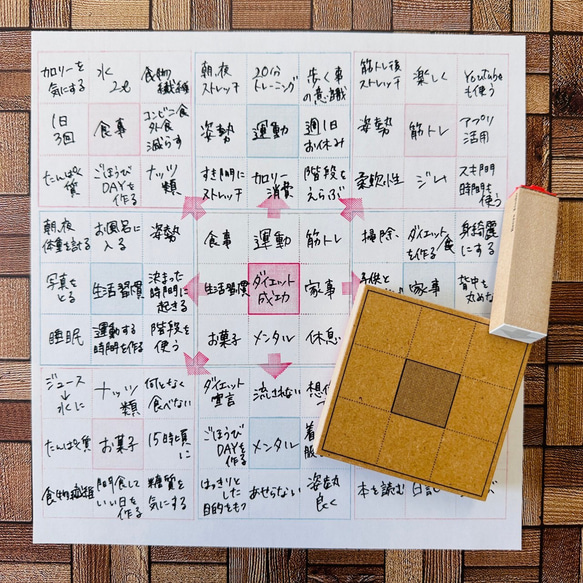 カロリーを
気にする
水
2ℓ
食物
繊維
1日
3回
食事
コンビニ食
外食
減らす
たんぱく
質
ごほうび
DAYを
作る
ナッツ
類
朝、夜
ストレッチ
20分
トレーニング
歩く事
の意識
姿勢
運動
週1日
お休み
すき間に
ストレッチ
カロリー
消費
階段を
えらぶ
筋トレ後
ストレッチ
楽しく
Youtube
も使う
姿勢
筋トレ
アプリ
活用
柔軟性
ジム
スキ間
時間を
使う
朝、夜
体重を計る
お風呂に
入る
姿勢
写真を
とる
生活習慣
決まった
時間に
起きる
睡眠
運動する
時間を作る
階段を
使う
食事
運動
筋トレ
生活習慣
ダイエット
成功
家事
お菓子
メンタル
休息
掃除、
ダイエット食
を作る
身綺麗
にする
家事
背中を
丸めな
ジュース
↓
水に
ナッツ
類
何となく
食べない
たんぱく質
お菓子
15時頃
に
食物繊維
間食して
いい日を
作る
糖質を
気にする
ダイエット
宣言
流されない
ごほうび
DAYを
作る
メンタル
はっきりとした
目的をもつ
あせらない
姿勢
良く
本を読む